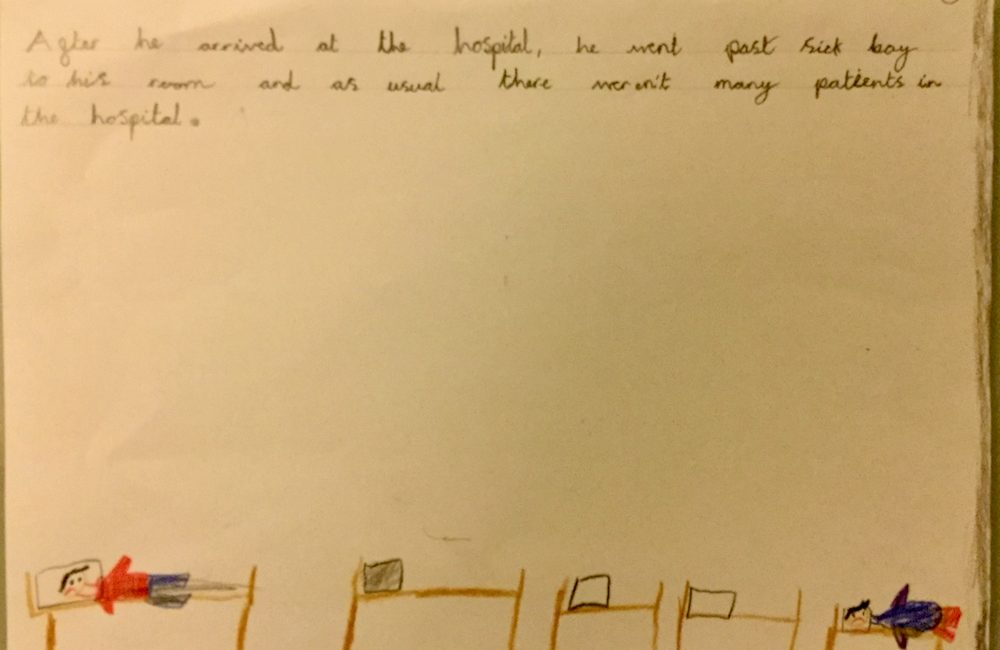 After he arrived at the hospital, he went past sick bay
to his room and as usual there weren't many patients in
the hospital.